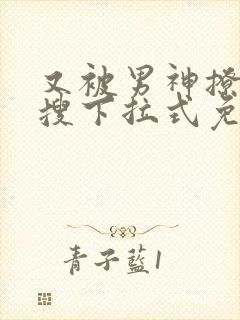 又被男神撩
搜下拉式免
青子藍1